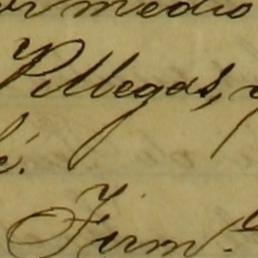 or medio
Villegas, y
é.
Firm.